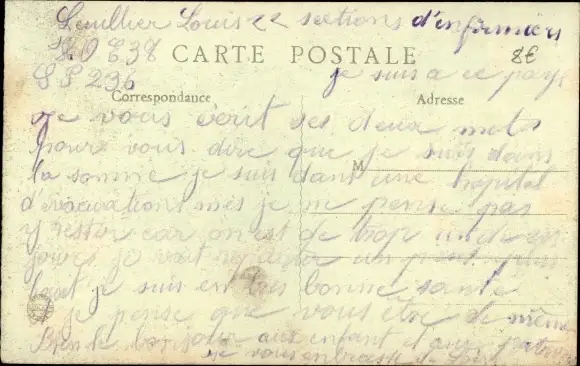 Louis 22 sections d'infirmiers
H O E 38 CARTE POSTALE 8€
S P 236 je suis a ce pays
Correspondance Adresse
je vous écrit ses deux mots
pour vous dire que je suis dans
M
la somme je suis dans une hopital
d'évacuationt mes je ne pense pas
y rester car on est de trop
je un peut plus
je suis est tres bonne santé
je pense que vous être de même
Bien le bonjour aux enfant
je vous embrasse